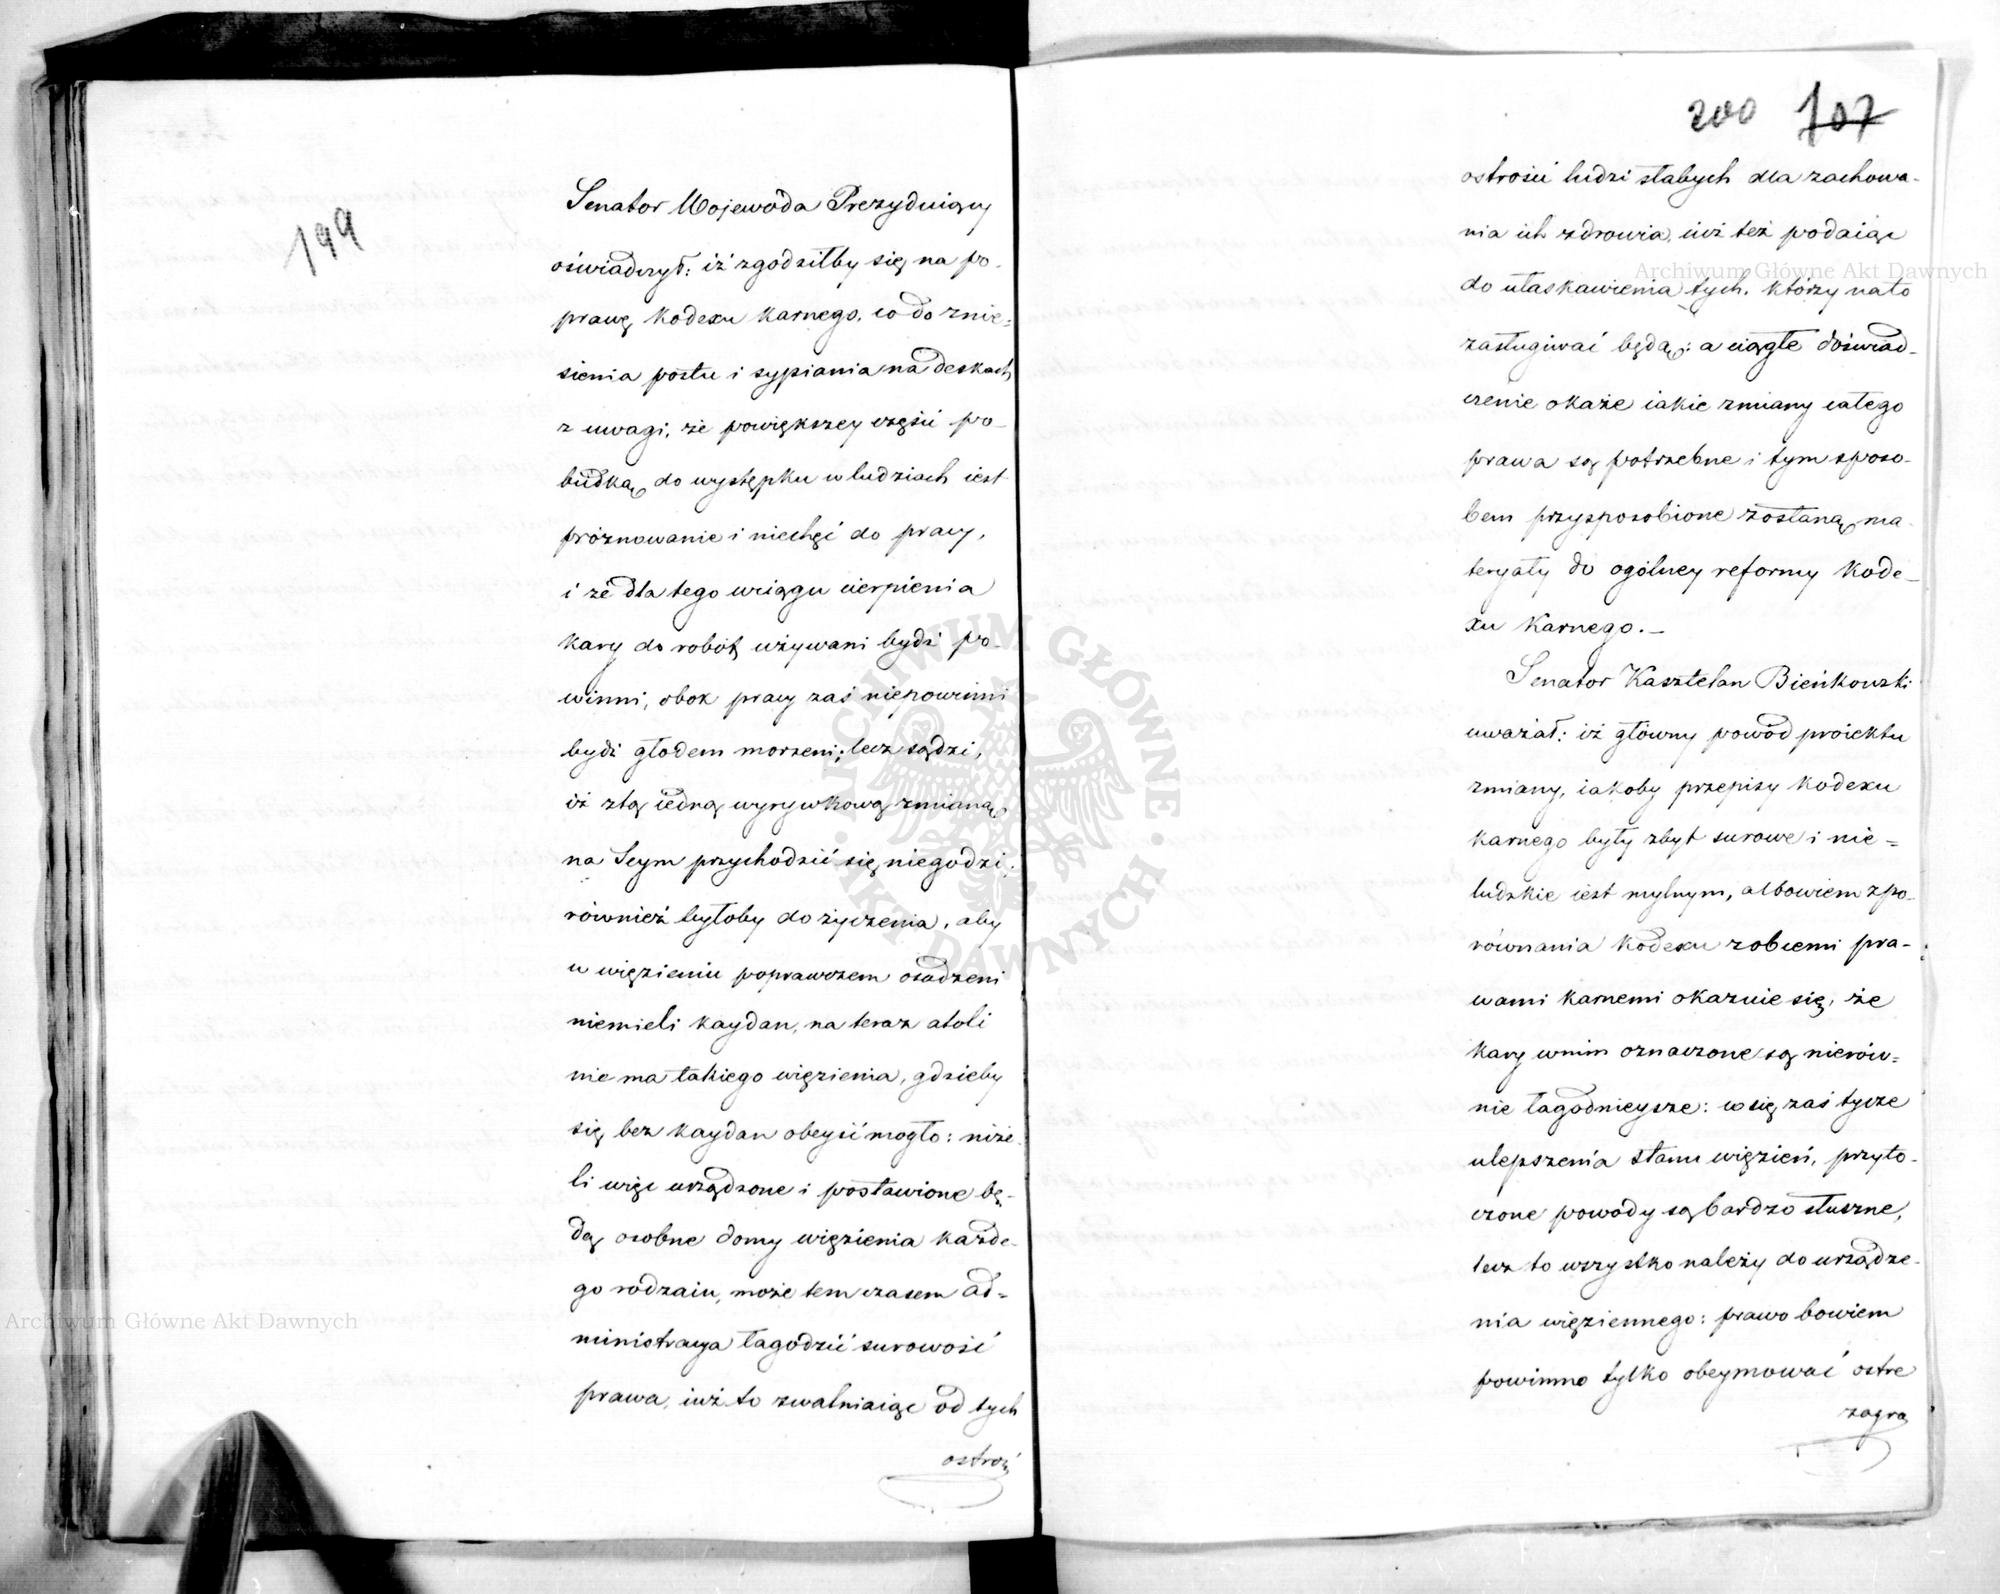 199
Senator Wojewoda Prezyduiący
oświadczył: iż zgodziłby się na po-
prawę Kodexu Karnego, co do znie=
sienia postu i sypiania na deskach
z uwagi, że powiększey części po-
budką do występku w ludziach iest
próżnowanie i niechęć do pracy,
i że dla tego wciągu cierpienia
kary do robót używani bydź po-
winni, obok pracy zaś niepowinni
bydź głodem morzeni; lecz sądzi,
iż ztą iedną wyrywkową zmianą
na Seym przychodzić się niegodzi;
również byłoby do życzenia, aby
w więzieniu poprawczem osadzeni
niemieli kaydan, na teraz atoli
nie ma takiego więzienia, gdzieby
się bez kaydan obeyść mogło: niże-
li więc urządzone i postawione bę-
dą osobne domy więzienia każde-
go rodzaiu, może tem czasem ad=
ministracya łagodzić surowość
prawa, iuż to zwalniaiąc od tych
ostroś
200 107
ostrości ludzi słabych dla zachowa-
nia ich zdrowia, iuż też podaiąc
do ułaskawienia tych, którzy na to
zasługiwać będą: a ciągłe doświad-
czenie okaże iakie zmiany całego
prawa są potrzebne i tym sposo-
bem przysposobione zostaną ma-
teryały do ogólney reformy Kode-
xu Karnego.—
Senator Kasztelan Bieńkowski
uważał: iż główny powód proiektu
zmiany, iakoby przepisy Kodexu
karnego były zbyt surowe i nie=
ludzkie iest mylnym, albowiem zpo-
równania Kodexu zobcemi pra-
wami karnemi okazuie się, że
kary wnim oznaczone są nierów=
nie łagodnieysze: co się zaś tycze
ulepszenia stanu więzień, przyto-
czone powody są bardzo słuszne,
lecz to wszystko należy do urządze-
nia więziennego: prawo bowiem
powinno tylko obeymować ostre
zagro
Archiwum Główne Akt Dawnych
Archiwum Główne Akt Dawnych
ARCHIWUM GŁÓWNE · AKT DAWNYCH ·